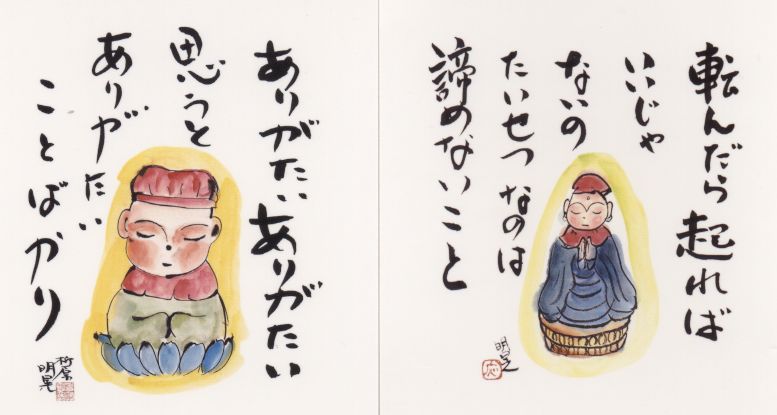 転んだら起れば
いいじゃ
ないの
たいせつなのは
諦めないこと
明晃
ありがたいありがたい
思うと
ありがたい
ことばかり
明晃